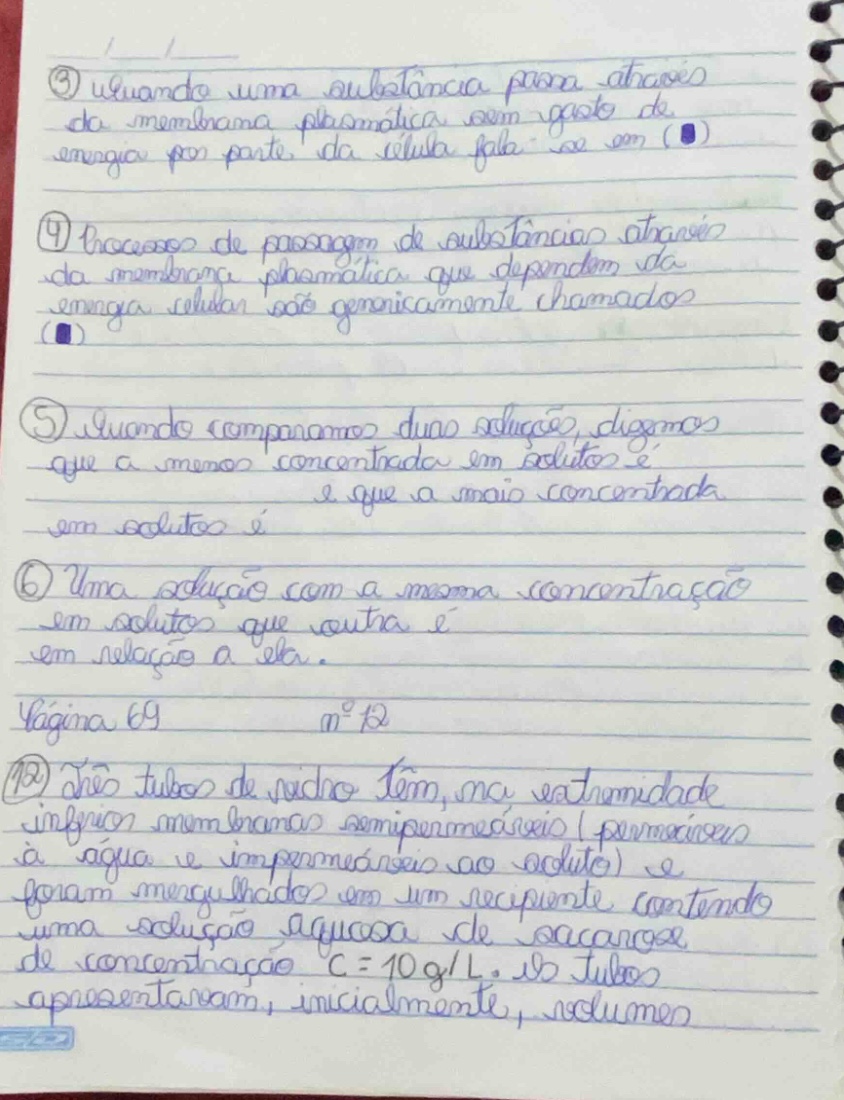 ③ Quando uma substância passa através
da membrana plasmática sem gasto de
energia por parte da célula fala-se em ( )
④ Processos de passagem de substâncias através
da membrana plasmática que dependem da
energia celular são genericamente chamados
( )
⑤ Quando comparamos duas solução, digemos
que a menos concentrada em solutos é
e que a mais concentrada
em solutos é
⑥ Uma solução com a mesma concentração
em solutos que outra é
em relação a ela.
Página 69 nº 12
⑫ Três tubos de vidro têm, na extremidade
inferior membranas semipermeáveis (permeáveis
à água e impermeáveis ao soluto) e
foram mergulhados em um recipiente contendo
uma solução aquosa de sacarose
de concentração C = 10 g/L. Os tubos
apresentavam, inicialmente, volumes